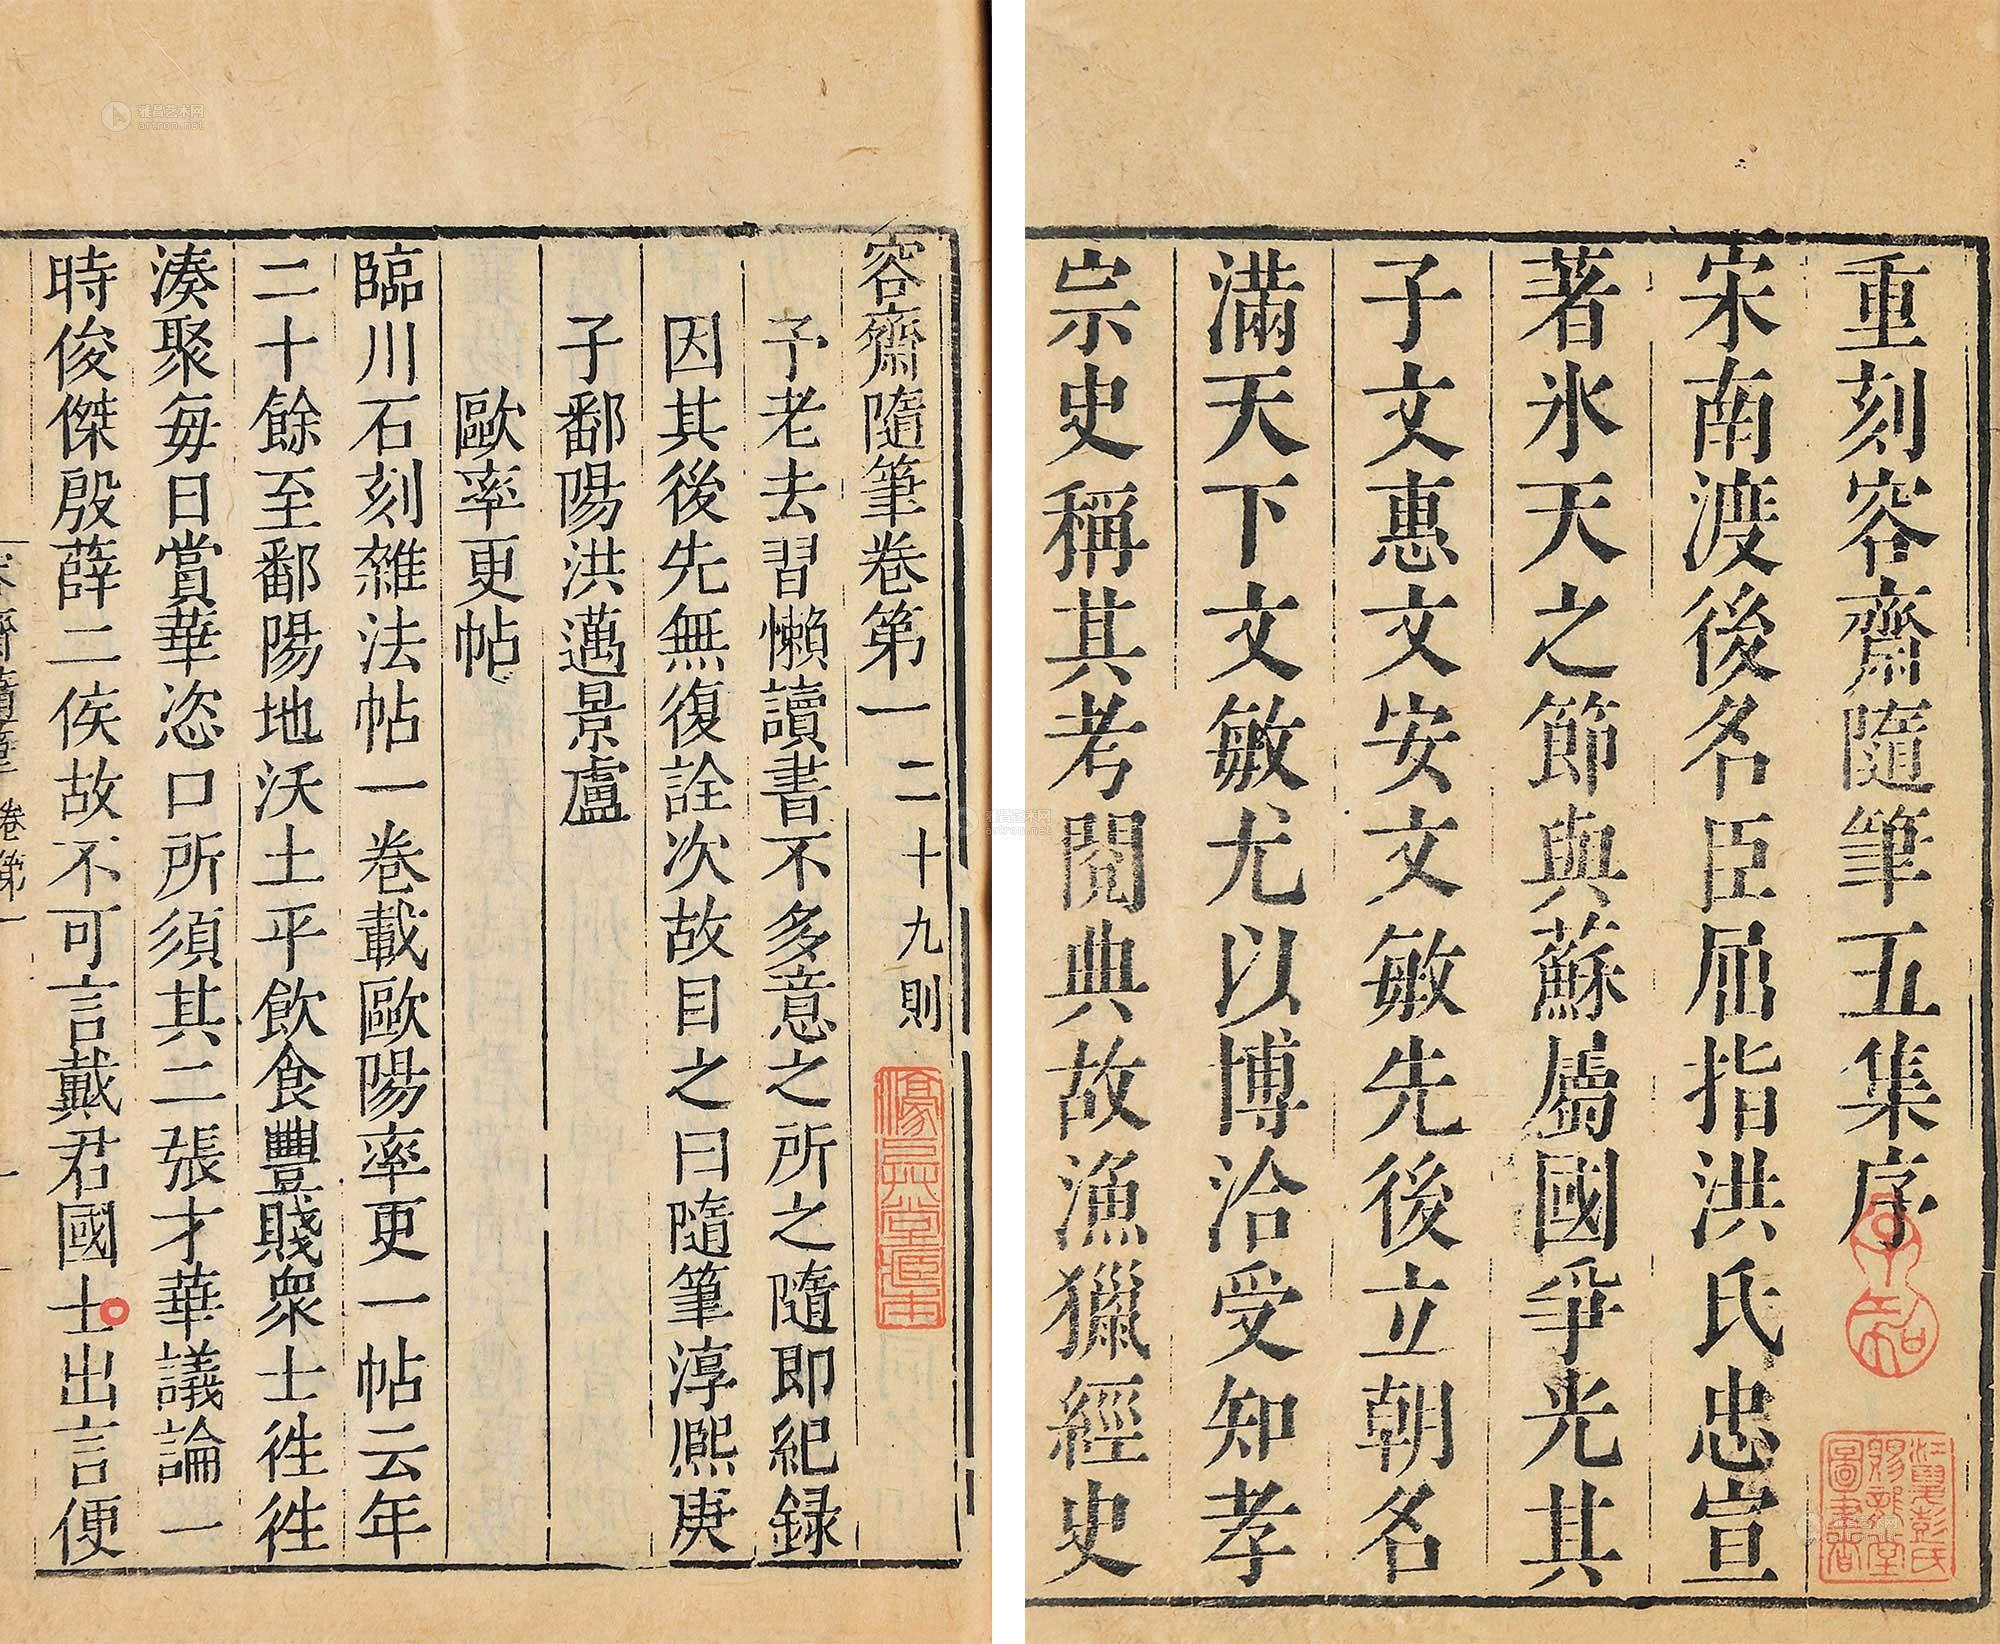 重刻容齋隨筆五集序
宋南渡後名臣屈指洪氏忠宣
著氷天之節與蘇屬國爭光其
子文惠文安文敏先後立朝名
滿天下文敏尤以博洽受知孝
宗史稱其考閱典故漁獵經史
容齋隨筆卷第一 二十九則
予老去習懶讀書不多意之所之隨即紀録
因其後先無復詮次故目之曰隨筆淳熙庚
子鄱陽洪邁景盧
歐率更帖
臨川石刻雜法帖一卷載歐陽率更一帖云年
二十餘至鄱陽地沃土平飲食豐賤衆士徃徃
湊聚每日賞華恣口所須其二張才華議論一
時俊傑殷薛二侯故不可言戴君國士出言便
容齋隨筆 卷第一
雅昌艺术网
artron.net